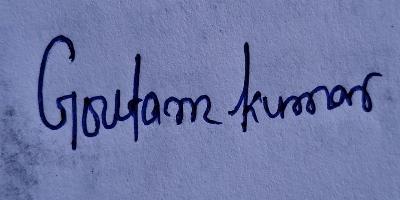 Goutam kumar